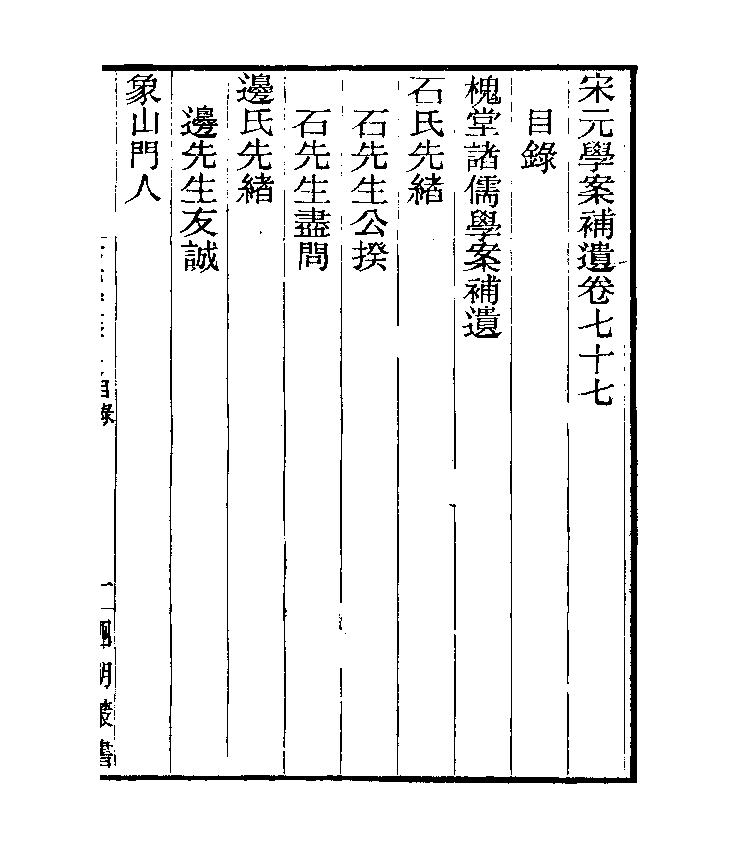 宋元學案補遺卷七十七
目錄
槐堂諸儒學案補遺
石氏先緒
石先生公揆
石先生晝問
邊氏先緒
邊先生友誠
象山門人
目錄
四明叢書